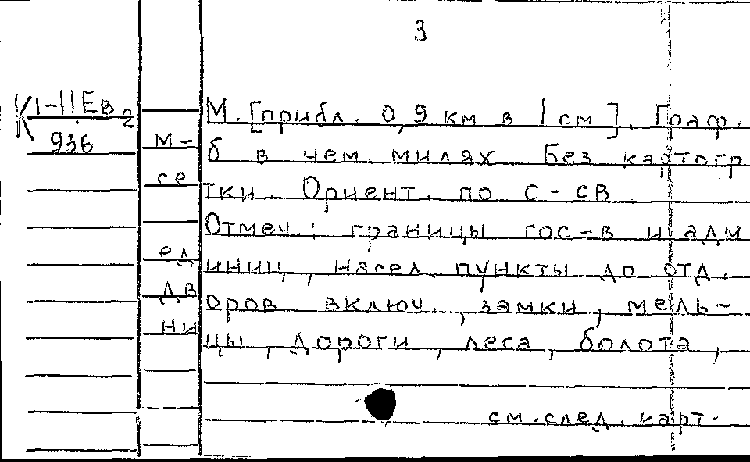 3
К 1-II Ев 2
936
М. [прибл. 0,9 км в 1 см]. Граф.
м-б в чем. милях. Без картогр
се тки. Ориент. по С-СВ.
Отмеч.: границы гос-в и адм
ед иниц, насел. пункты до отд.
дв оров включ., замки, мель-
ни цы, дороги, леса, болота,
см. след. карт.